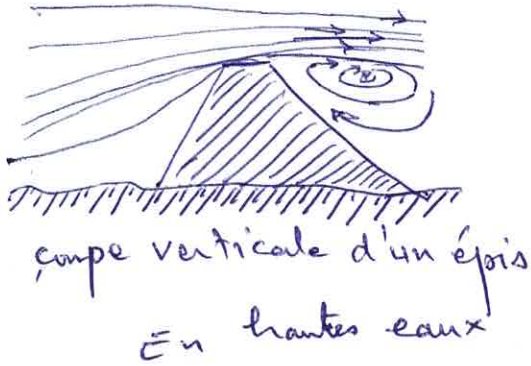 coupe verticale d'un épis
En hautes eaux